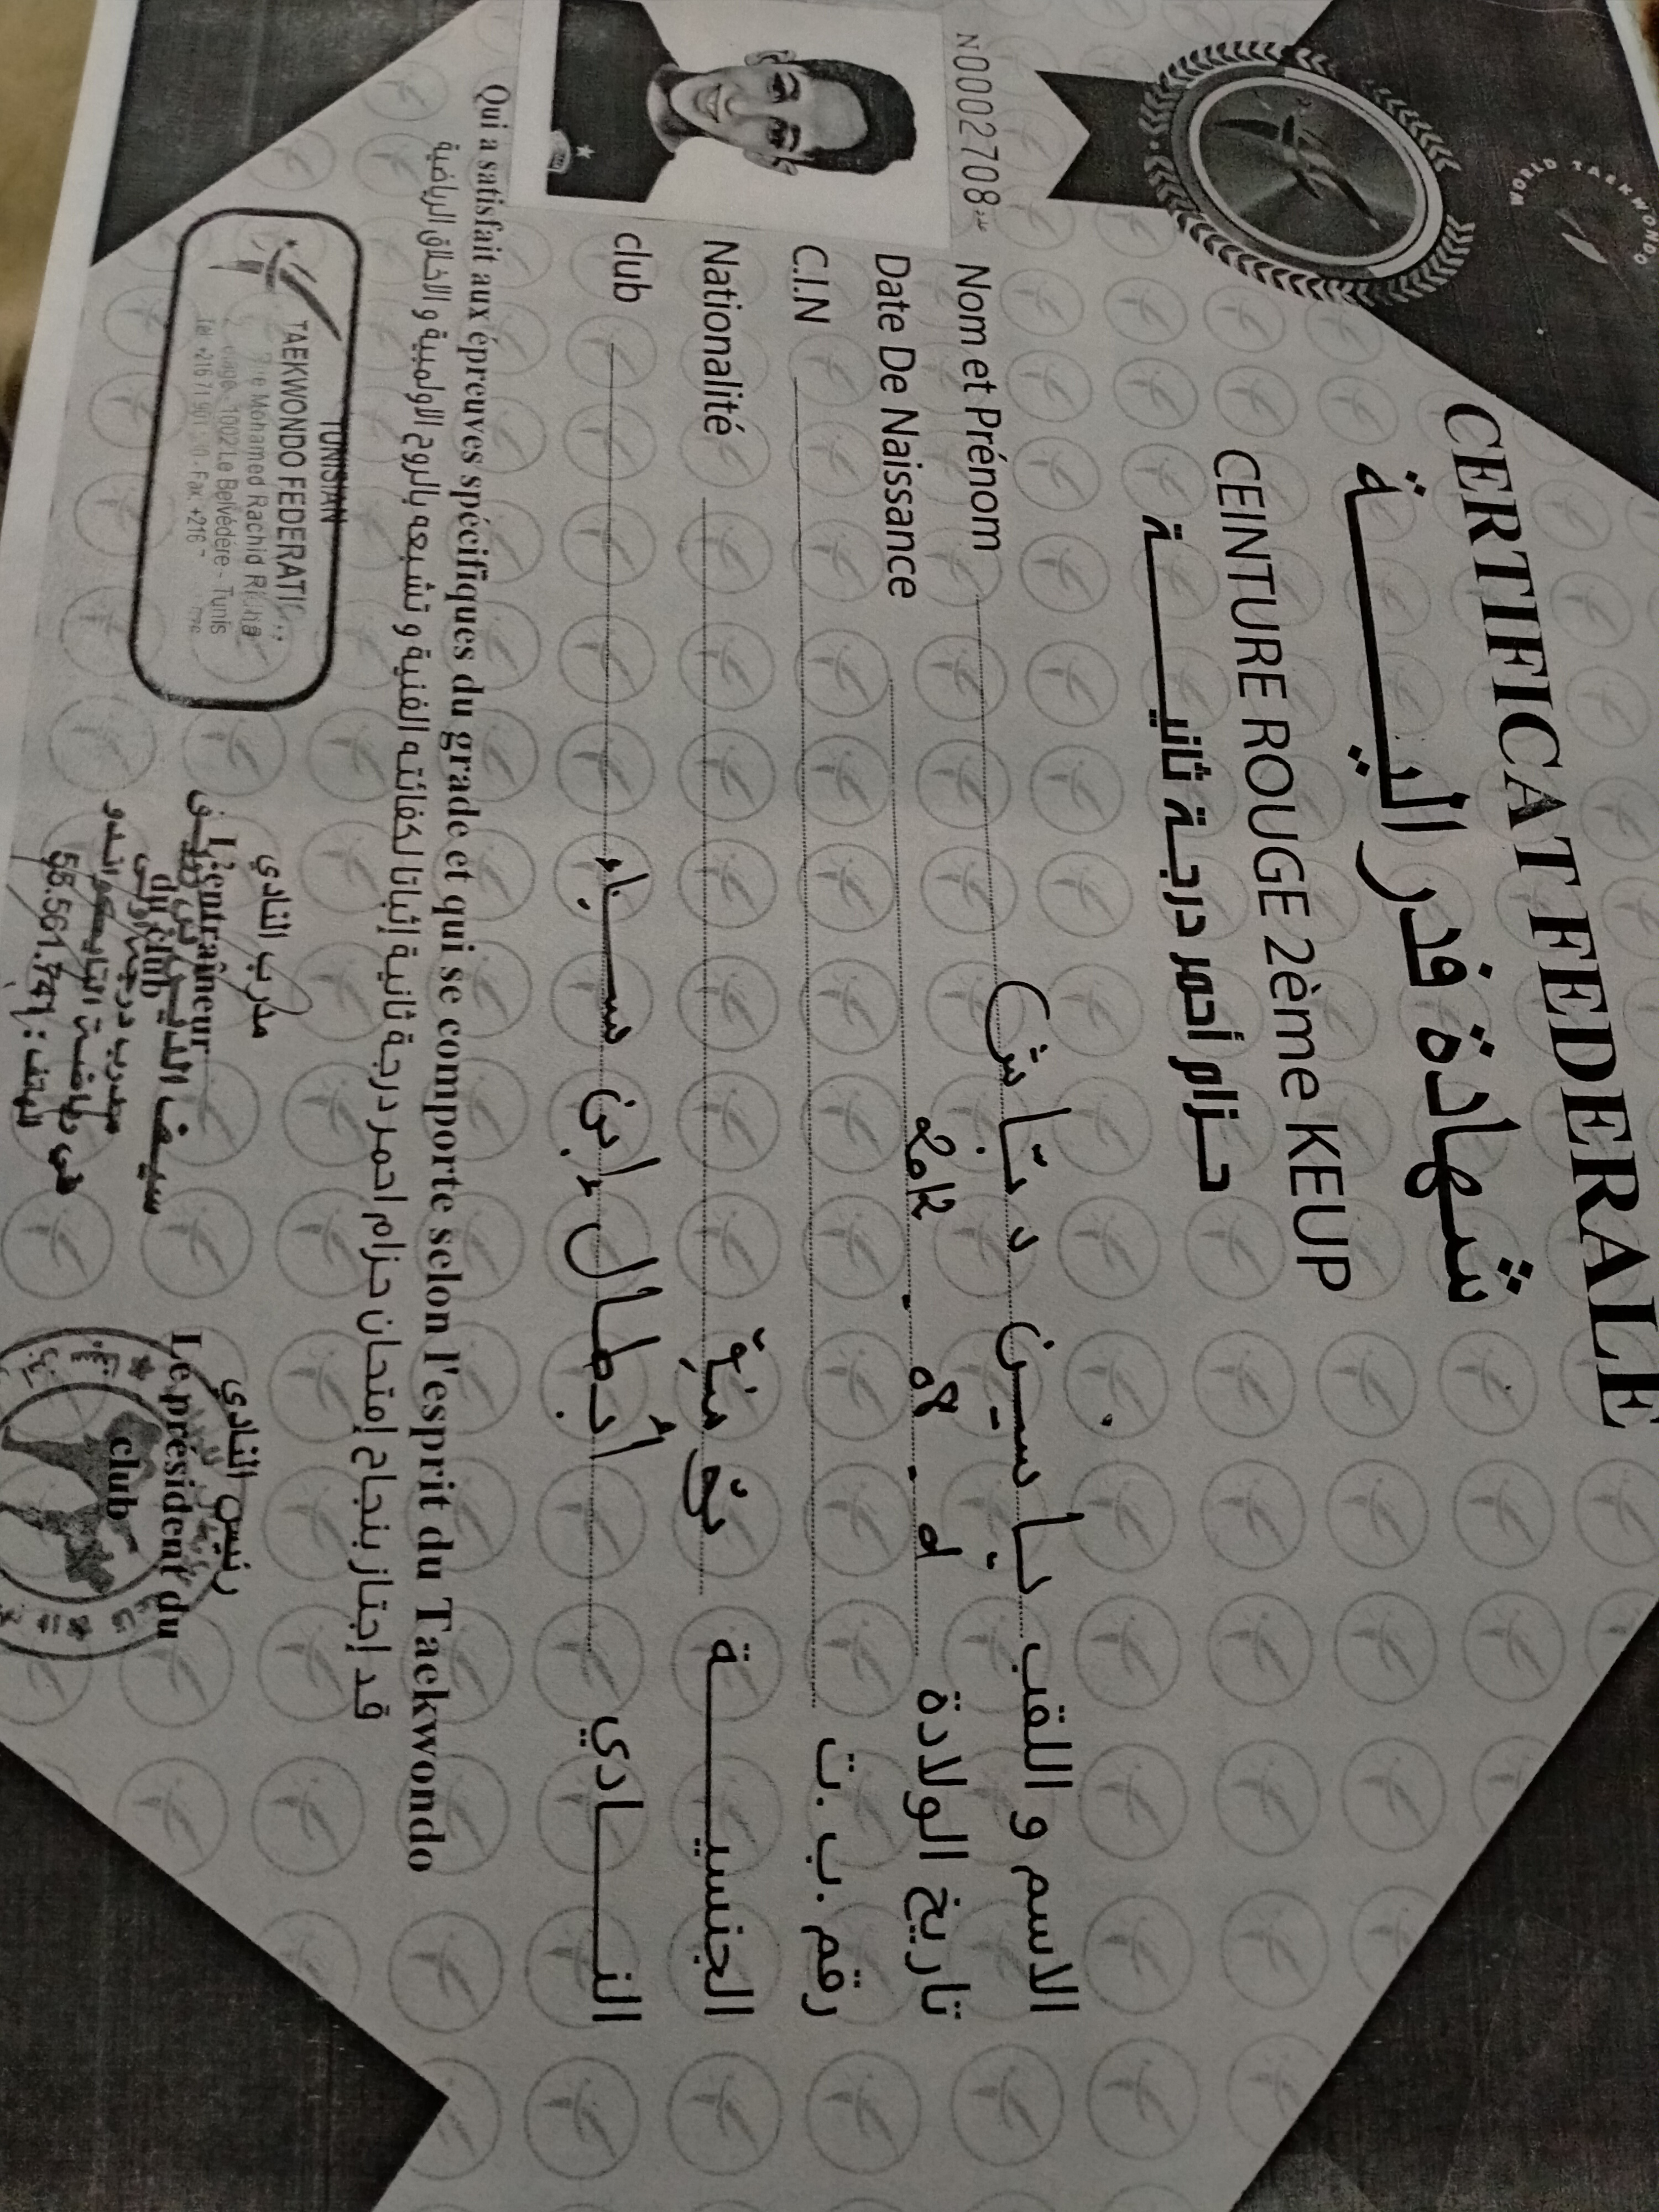 WORLD TAEKWONDO
CERTIFICAT FEDERALE
شهادة فدرالية
CEINTURE ROUGE 2ème KEUP
حزام أحمر درجة ثانية
N00002708
Nom et Prénom ياسين دتاش الاسم و اللقب
Date De Naissance تاريخ الولادة
C.I.N رقم .ب .ت
Nationalité تونسية الجنسية
club أبطال ابن سيناء النادي
Qui a satisfait aux épreuves spécifiques du grade et qui se comporte selon l'esprit du Taekwondo
قد إجتاز بنجاح إمتحان حزام احمر درجة ثانية إثباتا لكفائته الفنية و تشبعه بالروح الاولمبية و الاخلاق الرياضية
TUNISIAN
TAEKWONDO FEDERATI
Mohamed Rachid R
1002 Le Belvédère - Tunis
Tél +216 71 901 Fax +216 7
مدرب النادي
L'entraîneur
du club
سيف الدين
مدرب درجة أولى
في رياضة التايكواندو
الهاتف : 55.561.741
رئيس النادي
Le président du
club